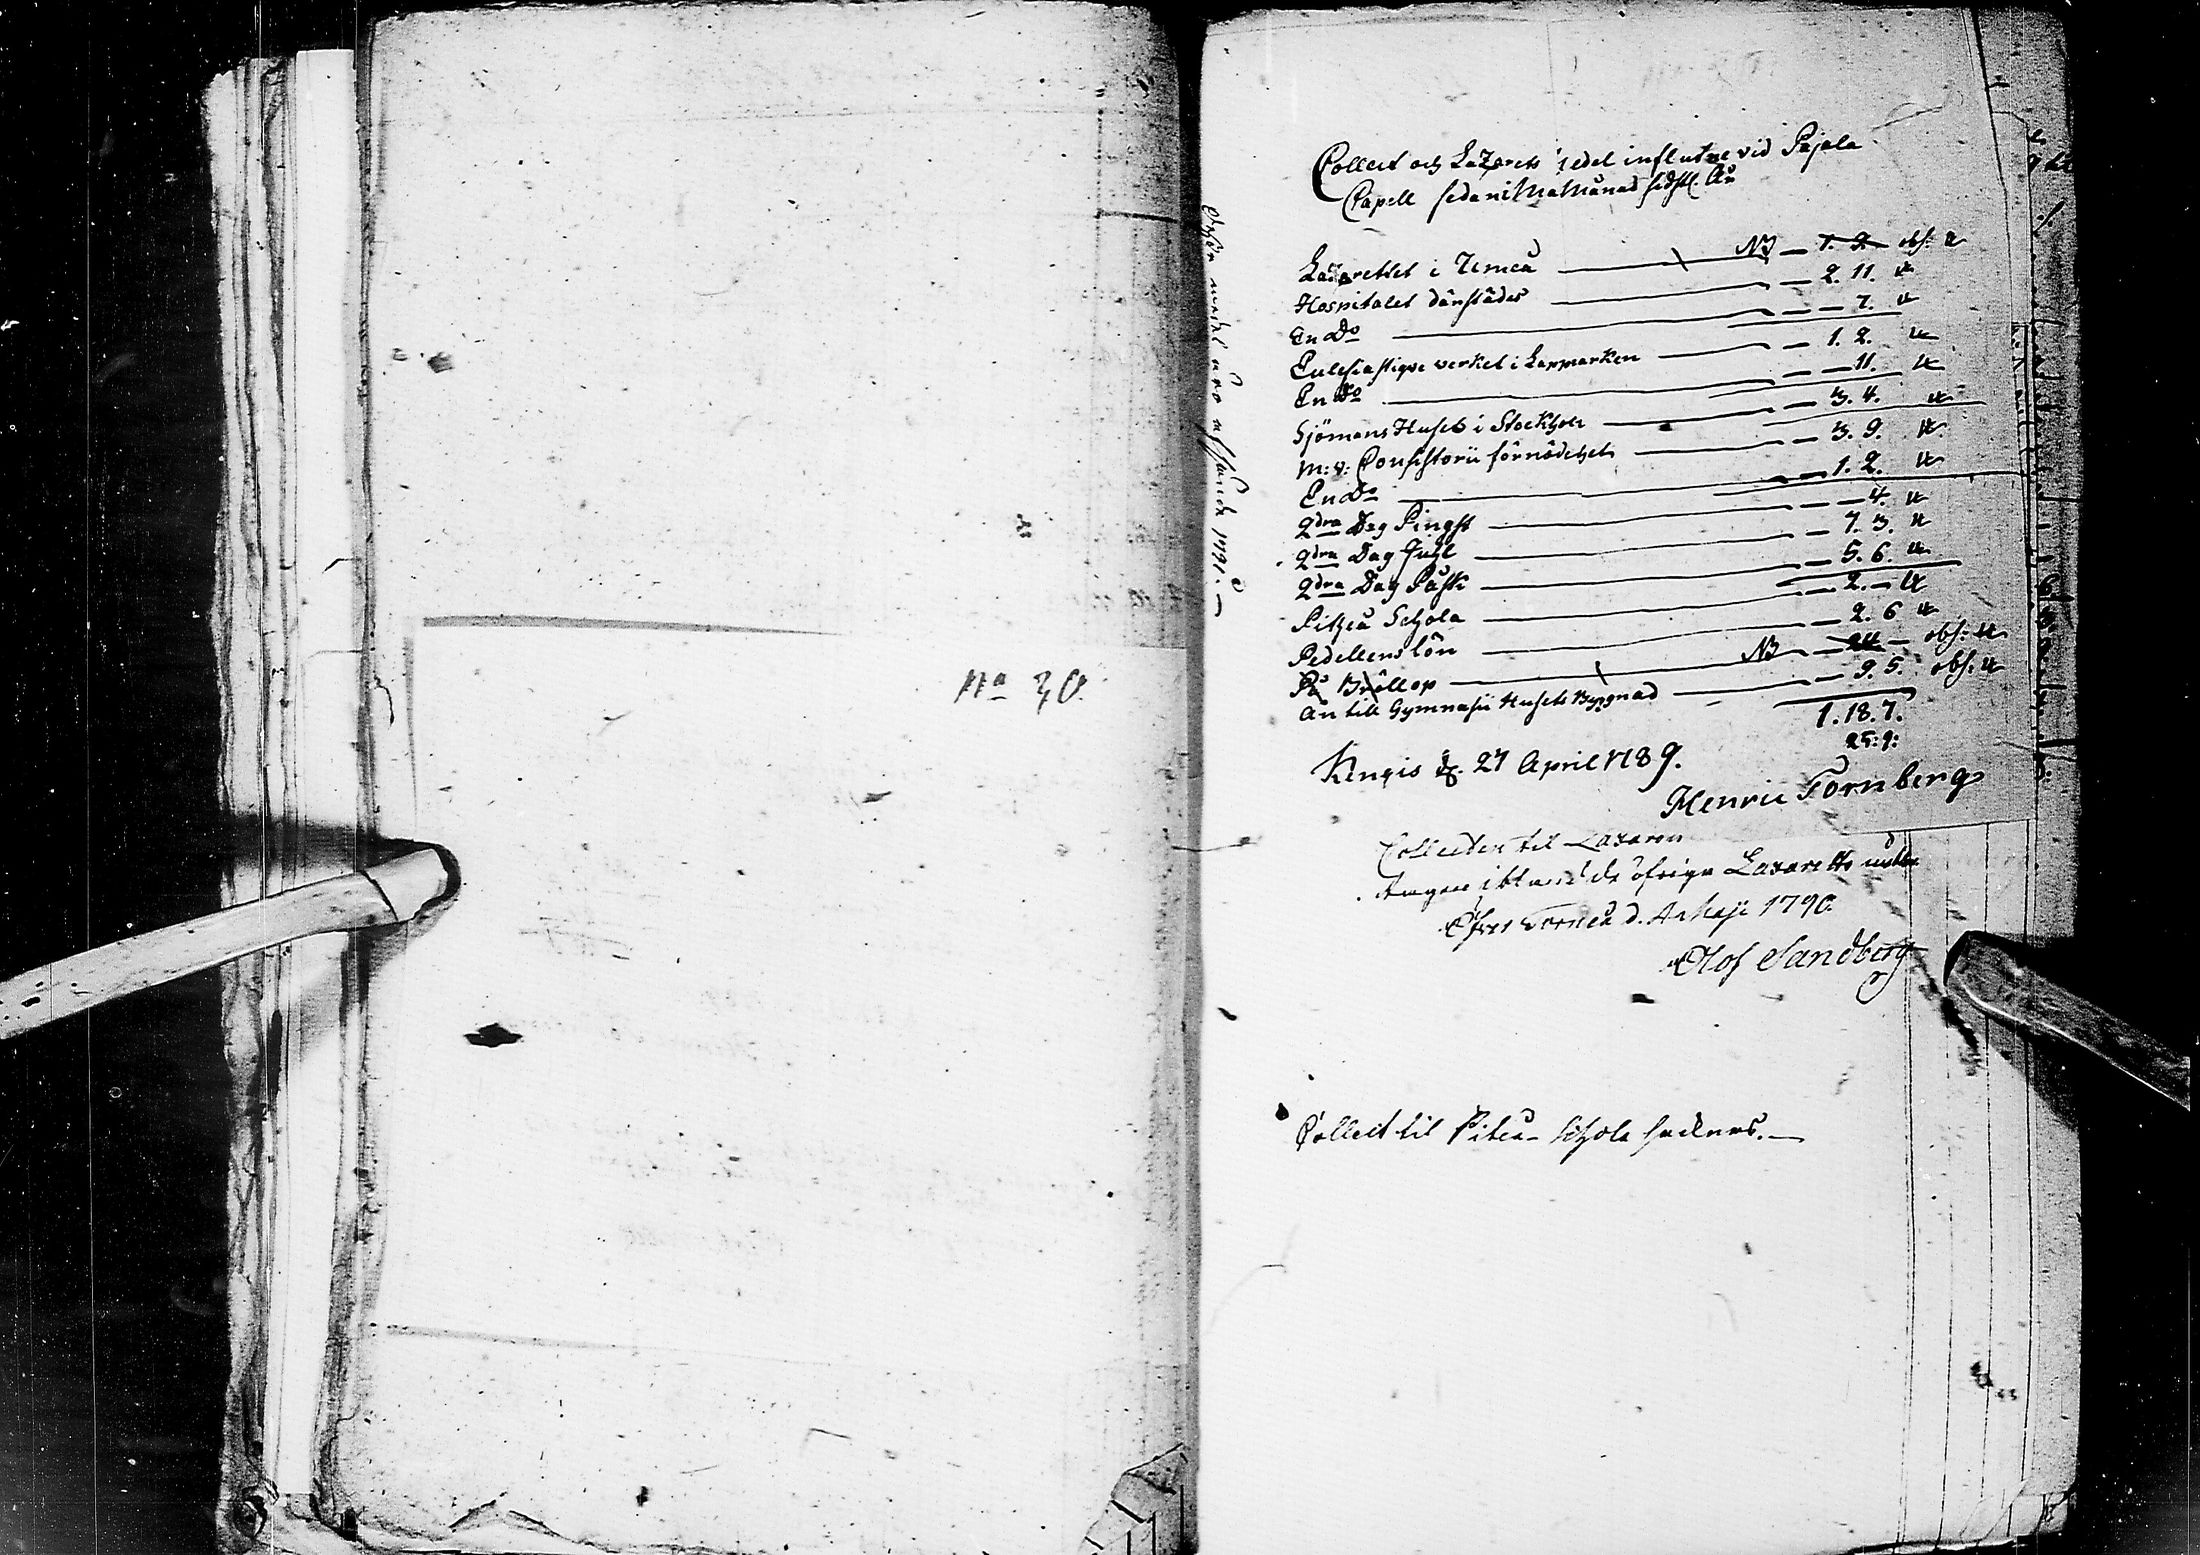 No 30.
Collect och Lazarets medel influtne vid Pajala
Capell sedan i Maji Månad sidstl. År
Lazarettet i Umeå — NB — 1. 2. obs: u
Hospitalet därstädes — 2. 11. u
En Do — 7. u
Ecclesiastique verket i Lappmarken — 1. 2. u
En Do — 11. u
Sjömans Huset i Stockholm — 3. 4. u
m: v: Consistorii förnödehet — 3. 9. u
En Do — 1. 2. u
2dra Dag Pingst — 4. u
2dra Dag Juhl — 7. 3. u
2dra Dag Påsk — 5. 6. u
Pitheå Schola — 2. — u
Pedellens lön — 2. 6 u
På Bröllop — NB — 24 — obs: u
Än till Gymnasii Husets Byggnad — 9. 5. obs: u
1. 18. 7.
25: 9:
Kengis d. 27 April 1789.
Henric Fornberg
Collecten til Lazaron
tagen ibland de öfriga Lazaretts
Öfver Torneå d. Maji 1790.
Olof Sandberg
Collect til Piteå Schola
1791.